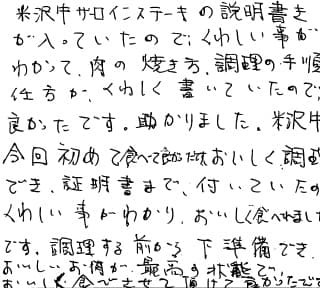 米沢牛サロインステーキの説明書き
が入っていたので、くわしい事が
わかって、肉の焼き方、調理の手順
仕方が、くわしく書いていたので
良かったです。助かりました。米沢牛
今回初めて食べて
おいしく調理
でき、証明書まで、付いていたの
くわしい事がわかり、おいしく食べれまし
です。調理する前から下準備でき、
おいしいお肉が最高の状態で、
おいしく食べさせて頂けて良かったです